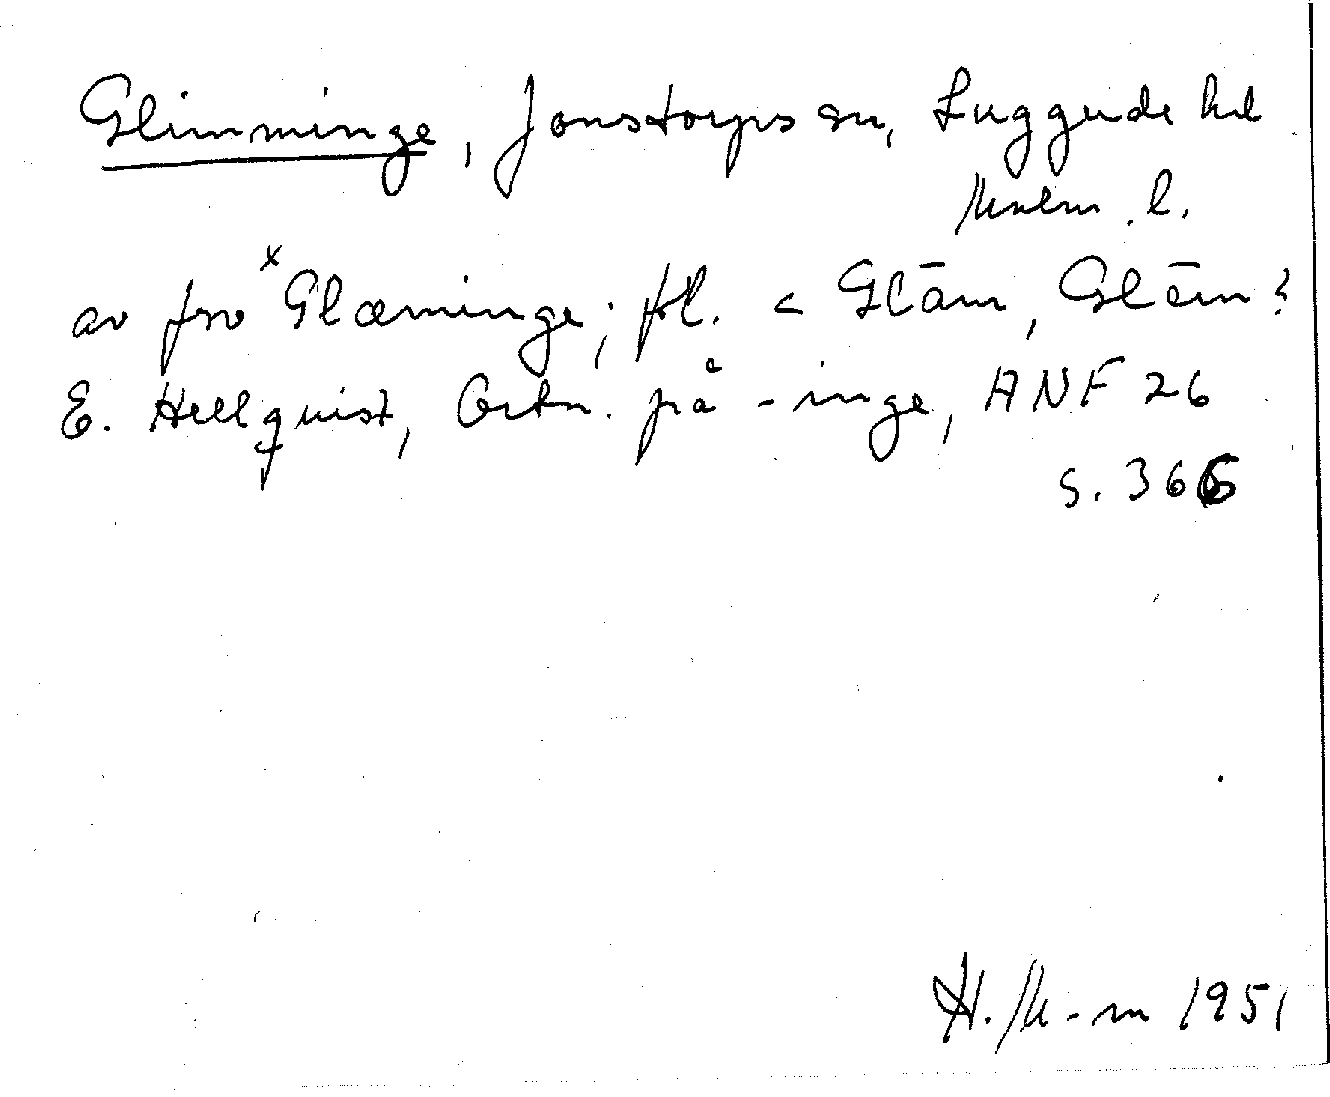 Glimminge, Jonstorps sn, Luggude hd
Malm. l.
av fsv *Glæminge; jfr. < Glām, Glēm?
E. Hellquist, Ortn. på -inge, ANF 26
s. 366
H. M-m 1951